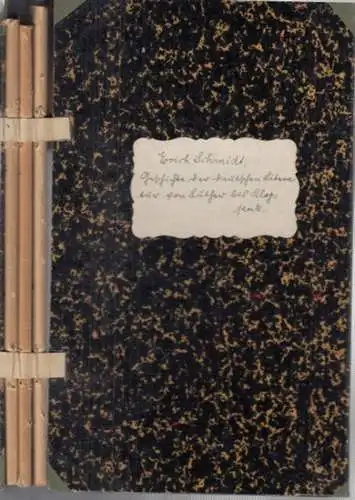 Erich Schmidt,
Geschichte der deutschen Litera
tur von Luther bis Klop,
stock.